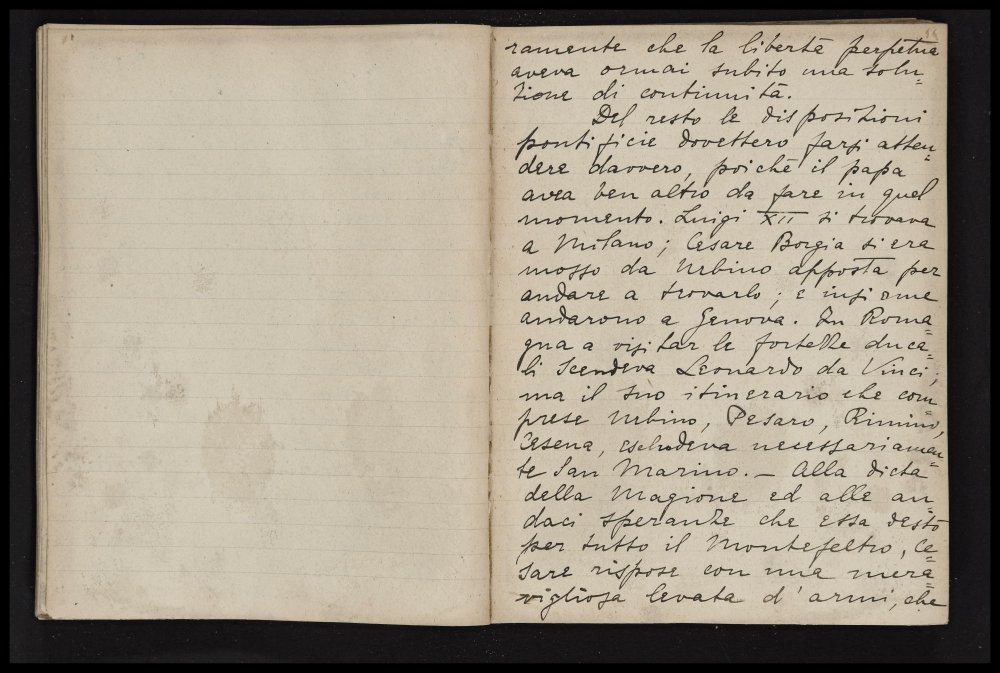 ramente che la libertà perpetua
aveva ormai subito una solu=
zione di continuità.
Del resto le disposizioni
pontificie dovettero farsi atten=
dere davvero, poiché il papa
avea ben altro da fare in quel
momento. Luigi XII si trovava
a Milano; Cesare Borgia si era
mosso da Urbino apposta per
andare a trovarlo; e insieme
andarono a Genova. In Roma=
gna a visitar le fortezze duca=
li scendeva Leonardo da Vinci;
ma il suo itinerario che com=
prese Urbino, Pesaro, Rimini,
Cesena, escludeva necessariamen=
te San Marino. — Alla dieta
della Magione ed alle au=
daci speranze che essa destò
per tutto il Montefeltro, Ce=
sare rispose con una mera=
vigliosa levata d'armi, che